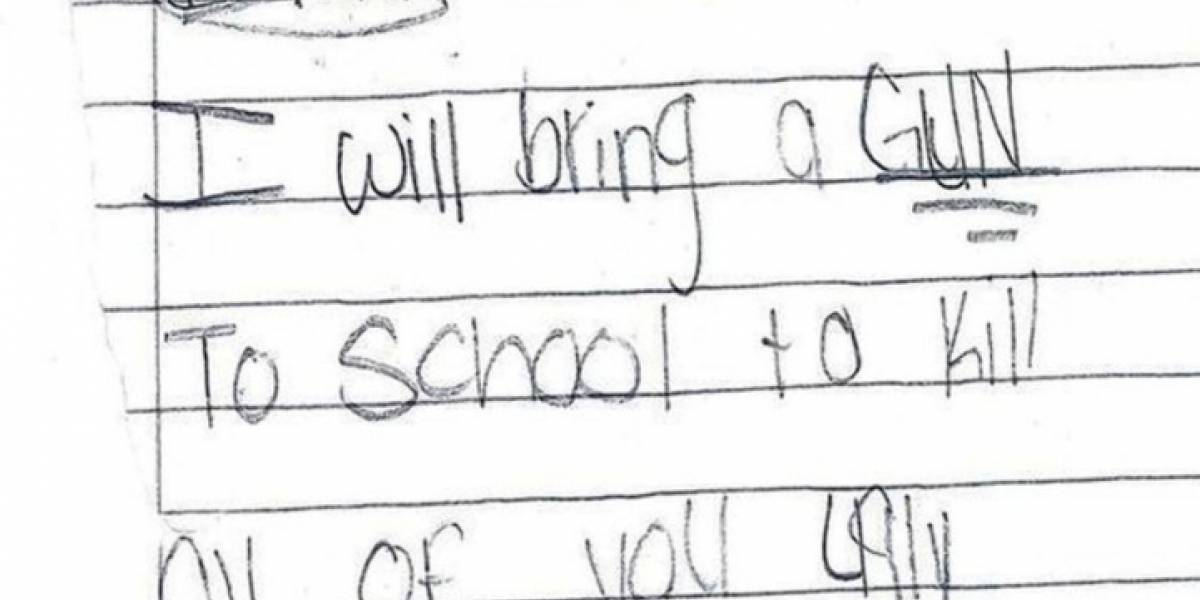 I will bring a GUN
To School to kill
All of you ugly